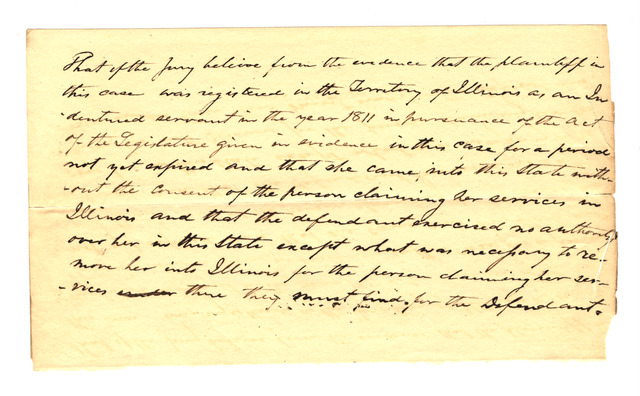 That if the Jury believe from the evidence that the plaintiff in
this case was registered in the Territory of Illinois as an In
dentured servant in the year 1811 in pursuance of the Act
of the Legislature given in evidence in this case for a period
not yet expired and that she came into this State with-
-out the consent of the person claiming her services in
Illinois and that the defendant exercised no authority
over her in this State except what was necessary to re-
move her into Illinois for the person claiming her ser-
-vices there they must find for the Defendant.